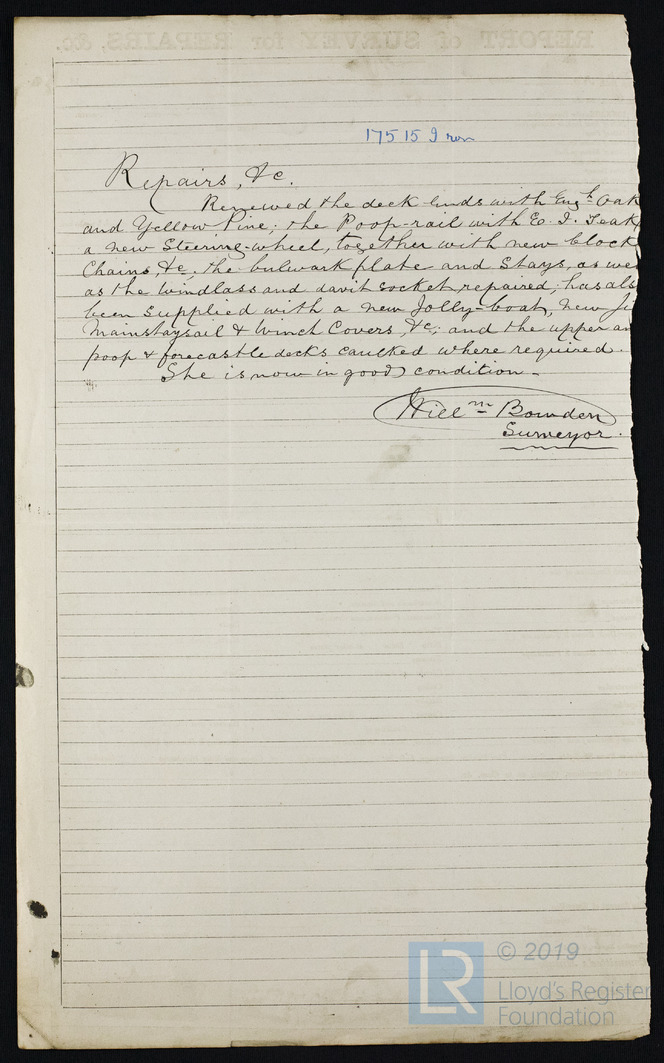 17515 Iron
Repairs, &c.
Renewed the deck ends with Engh Oak
and Yellow Pine; the Poop-rail with E. I. Teak
a new Steering-wheel, together with new block
Chains, &c, the bulwark plate and Stays, as wel
as the windlass and davit socket, repaired; has als
been supplied with a new Jolly-boat, new Ji
Mainstaysail & Winch Covers, &c; and the upper an
poop & forecastle decks caulked where required.
She is now in good condition -
Willm Bowden
Surveyor.
LR © 2019
Lloyd's Register
Foundation
REPORT of SURVEY for REPAIRS, &c.